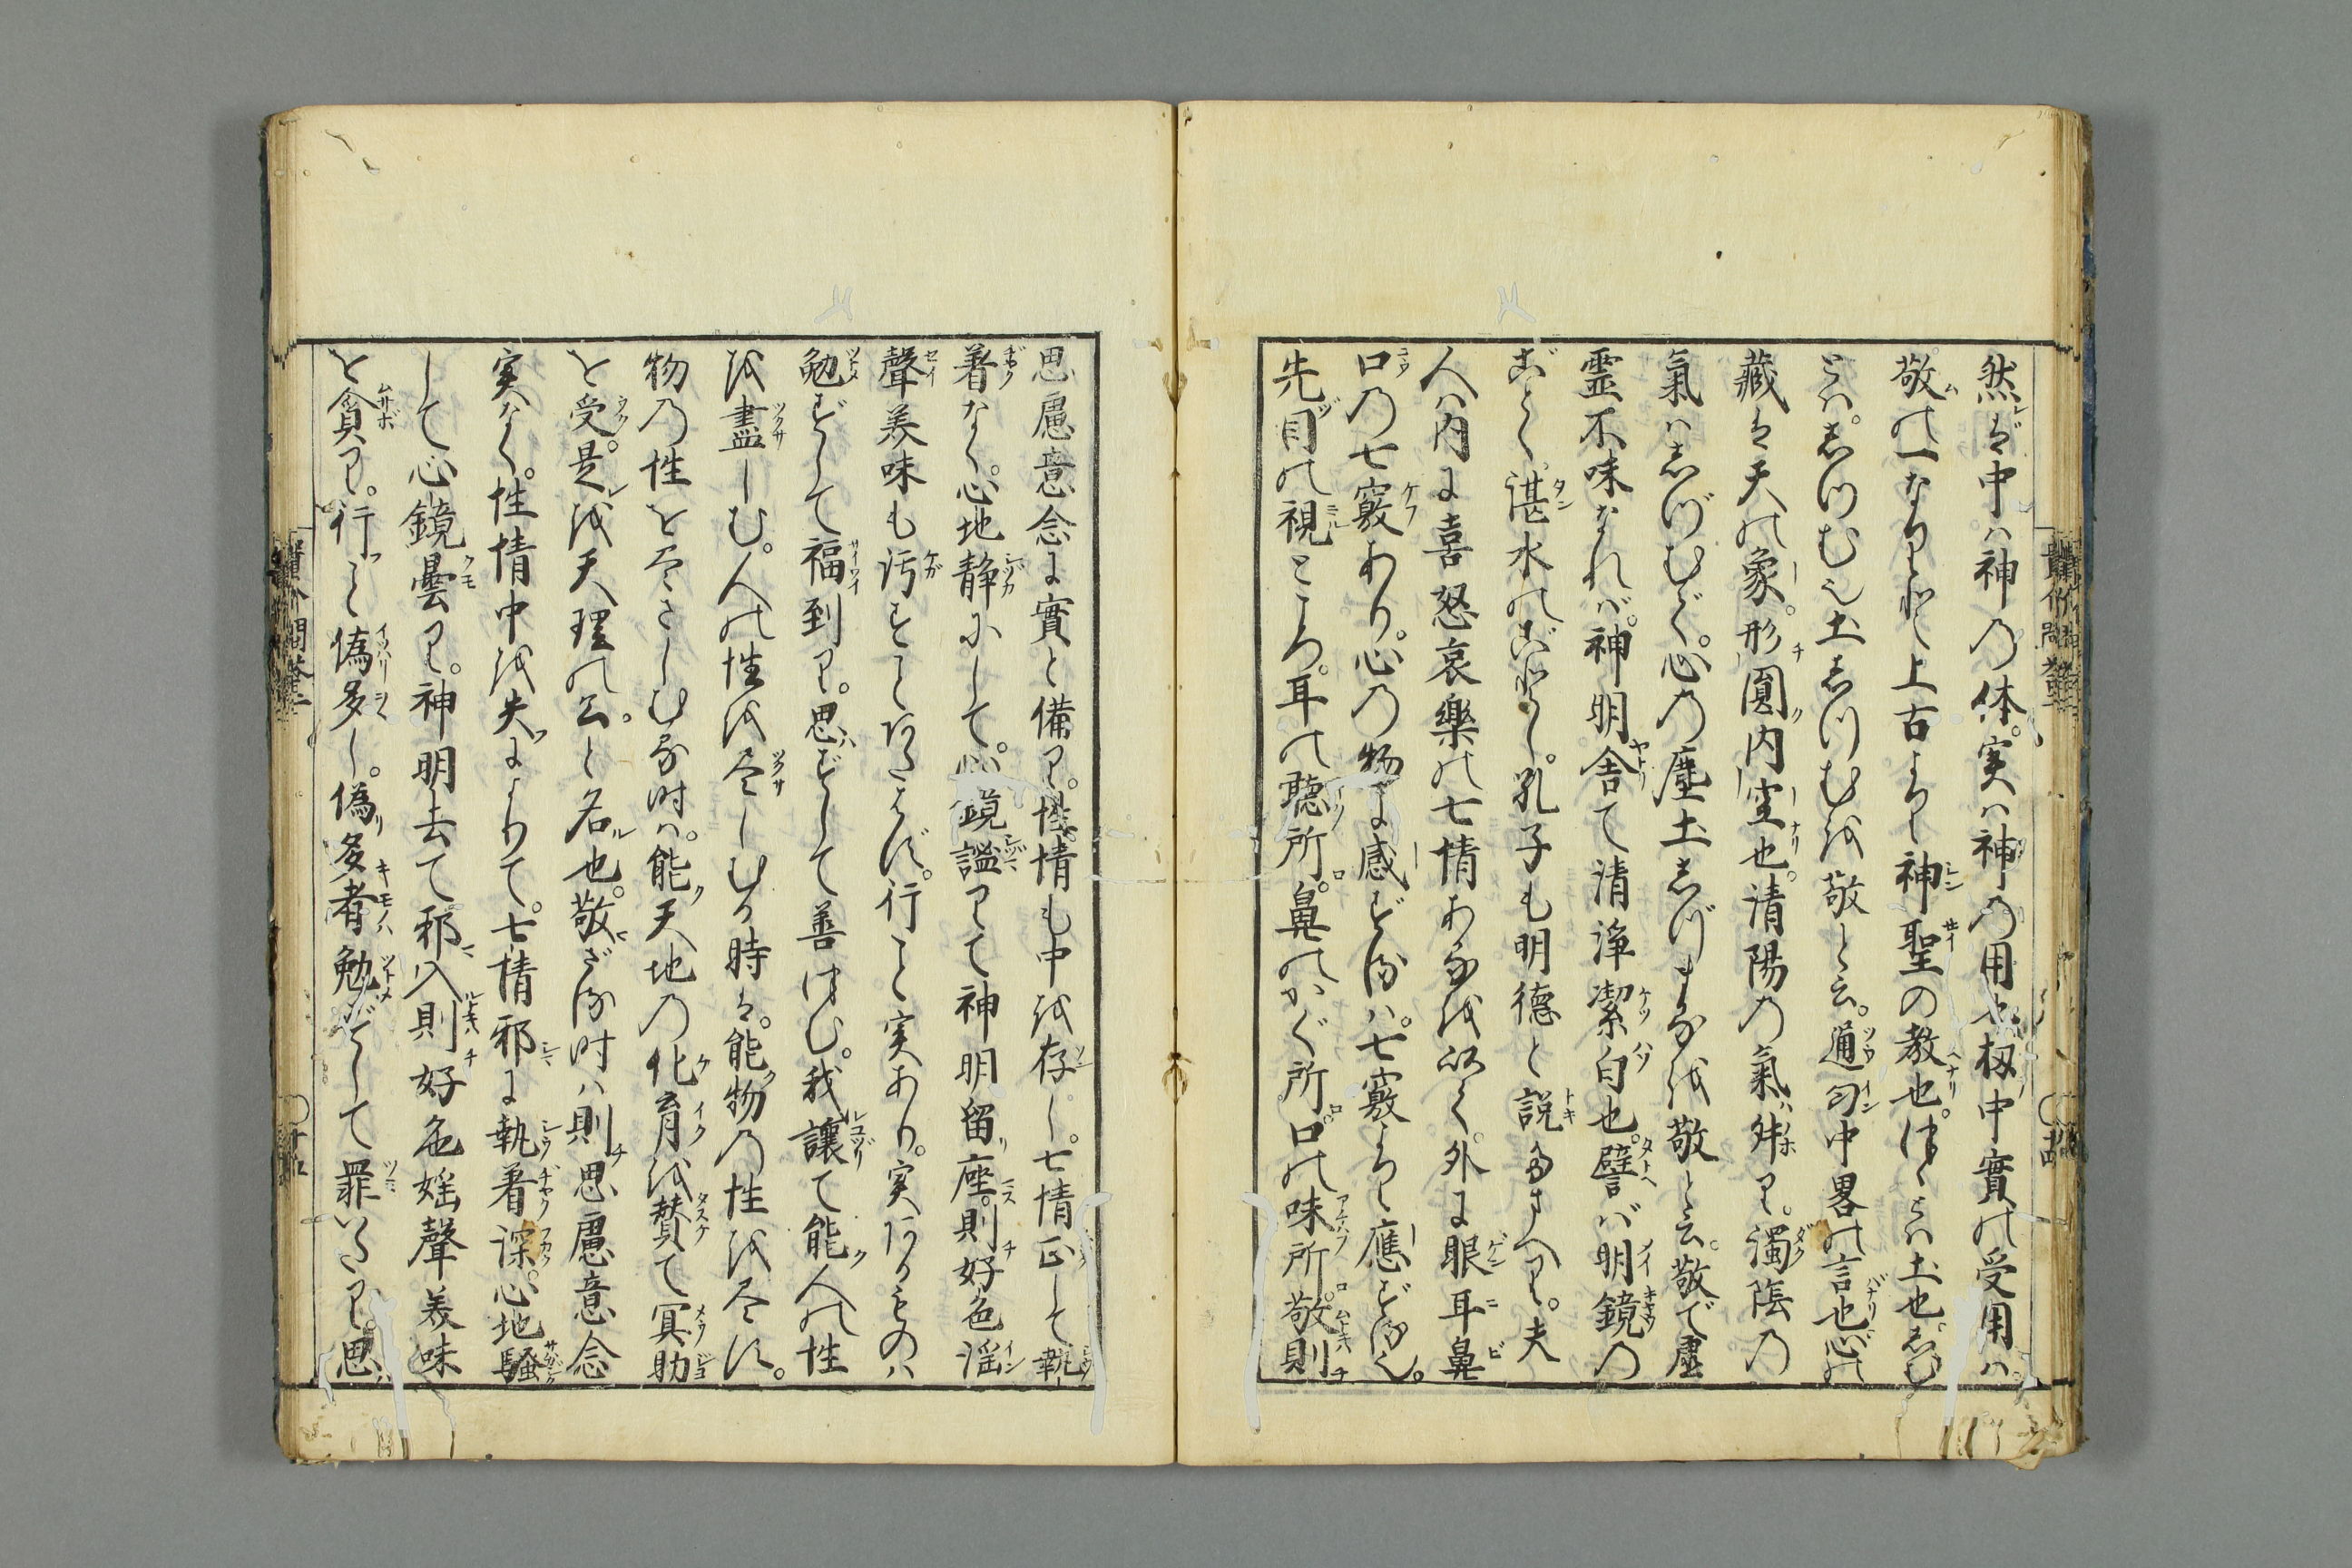 然ば中ハ神の体。実ハ神の用也扨中實の受用ハ。
敬の一なりと上古より神聖の教也。つゝとハ土也。しむ
とハ。しづむ也土しづむを敬と云。通句中畧の言也心の
藏は天の象。形圓内空也。清陽の氣ハ舛り。濁陰の
氣ハしづむぞ。心の塵土しづまるを敬と云。敬で虚
霊不味なれバ。神明舎て清浄潔白也。譬バ明鏡の
ごとく。湛水のごとし。孔子も明徳と説たまへり。夫
人ハ内に喜怒哀樂の七情あるを以て。外に眼耳鼻
口の七竅あり。心の物に感ずるハ。七竅より應ずる也。
先目の視ところ。耳の聴所。鼻のかぐ所。口の味所。敬則
思慮意念に實と備り。性情も中を存し。七情正して執
着なく。心地静にして。心鏡謐りて神明留座。則好色淫
聲美味も汚すことあたはず。行こと実あり。実あるものハ
勉ずして福到り。思ずして善はむ。我讓て能人の性
を盡しむ。人の性を尽しむる時は。能物の性を尽す。
物の性を尽さしむる時ハ。能天地の化育を賛て冥助
を受。是を天理の公と名也。敬ざる時ハ則思慮意念
実なく。性情中を失によりて。七情邪に執着深。心地騒
して心鏡曇り。神明去て邪入則好色婬聲美味
を貪り。行こと偽多し。偽多者勉ずして罪いたり。思